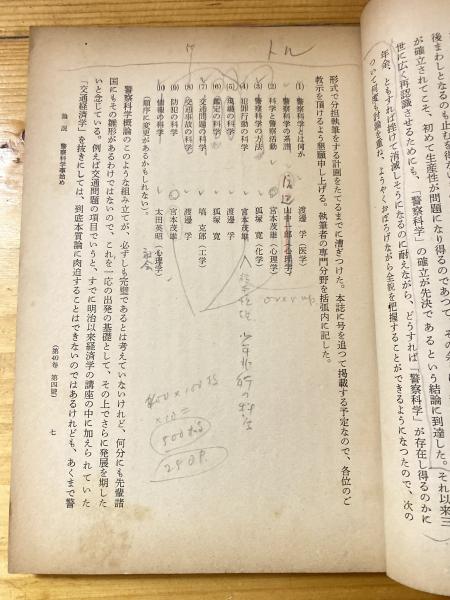 後まわしとなるのも止むを得ない
が確立されてこそ、初めて生産性が問題になり得るのであつて、
世に広く再認識させるためにも、「警察科学」の確立が先決であるという結論に到達した。それ以来三
年余、ともすれば挫けて消滅しそうになるのに耐えながら、どうすれば「警察科学」が存在し得るのかに
ついて何度も討論を重ね、ようやくおぼろげながら全貌を把握することができるようになつたので、次の
形式で分担執筆をする計画をたてるまでに漕ぎつけた。本誌に号を追つて掲載する予定なので、各位のご
教示を頂けるよう懇願申し上げる。執筆者の専門分野を括弧内に記した。
(1) 警察科学とは何か 渡邊 孚(医学)
(2) 警察科学の系譜 山中一郎(心理学)
(2) 科学と警察活動 宮本茂雄(心理学)
(3) 警察科学の方法 狐塚 寛(化学)
(4) 犯罪行動の科学 宮本茂雄
(5) 現場の科学 渡邊 孚
(6) 鑑定の科学 狐塚 寛
(7) 交通問題の科学 塙 克郎(工学)
(8) 交通事故の科学 渡邊 孚
(9) 防犯の科学 宮本茂雄
(10) 情報の科学 太田英昭(心理学)
(順序に変更があるかもしれない)。
警察科学概論のこのような組み立てが、必ずしも完璧であるとは考えていないけれど、何分にも先輩諸
国にもその雛形があるわけではないので、これを一応の出発の基礎として、その上でさらに発展を期した
いと念じている。例えば交通問題の項目でいうと、すでに明治以来経済学の講座の中に加えられていた
「交通経済学」を抜きにしては、到底本質論に肉迫することはできないのではあるけれども、あくまで警
論説 警察科学事始め
(第40巻 第四号)
七
トル
over up
500
250P.